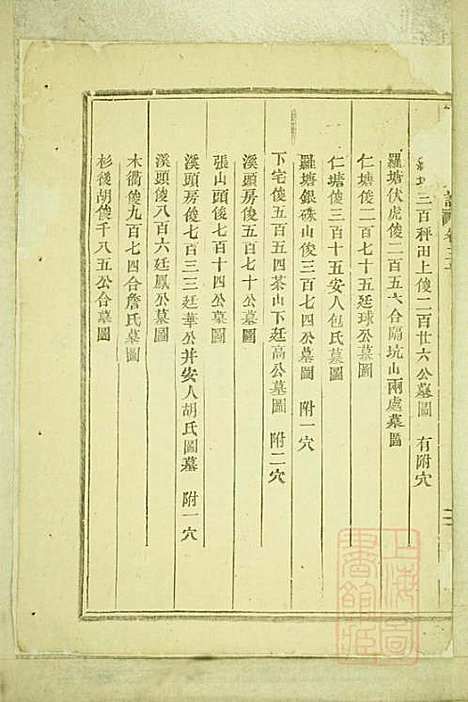 三百秤田上傻二百廿六公墓圖 有附穴
羅塘伏虎傻二百五六合隔坑山兩處墓圖
仁塘傻二百七十五廷球公墓圖
仁塘傻三百十五安人包氏墓圖
羅塘銀硃山傻三百七四公墓圖 附一穴
下宅傻五百五四茶山下廷高公墓圖 附二穴
溪頭房傻五百七十公墓圖
張山頭後七百十四公墓圖
溪頭房傻七百三三廷華公并安人胡氏圖墓 附一穴
溪頭傻八百六廷鳳公墓圖
木衢傻九百七四合詹氏墓圖
杉後胡傻千八五公合墓圖
上海圖書館藏